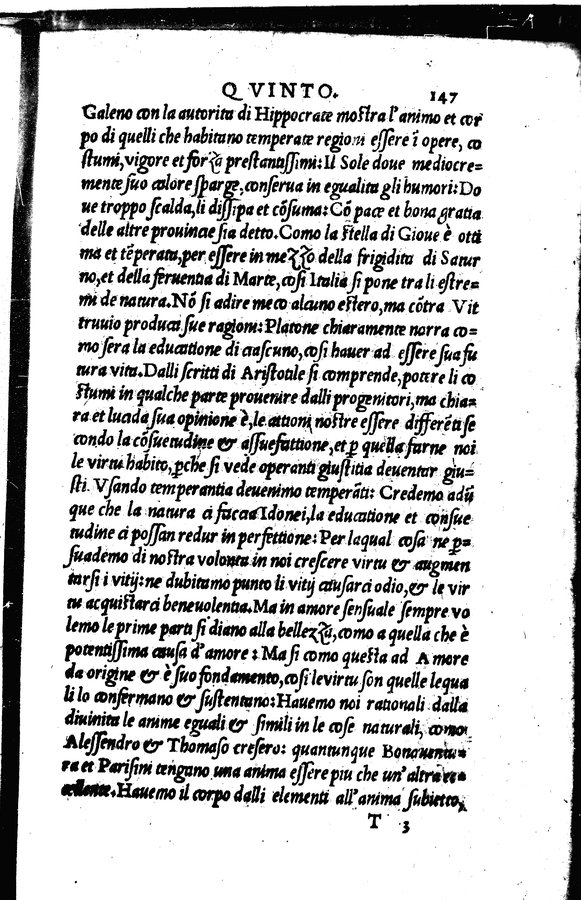 Q VINTO. 147
Galeno con la autorita di Hippocrate mostra l'animo et cor
po di quelli che habitano temperate regioni essere ĩ opere, co
stumi, vigore et forza prestantissimi: Il Sole doue mediocre=
mente suo calore sparge, conserua in egualita gli humori: Do
ue troppo scalda, li dissipa et cõsuma: Cõ pace et bona gratia
delle altre prouincie sia detto. Como la stella di Gioue è otti
ma et tẽperata, per essere in mezzo della frigidita di Satur
no, et della feruentia di Marte, cosi Italia si pone tra li estre=
mi de natura. Nõ si adire meco alcuno estero, ma cõtra Vit
truuio produca sue ragioni: Platone chiaramente narra co=
mo sera la educatione di ciascuno, cosi hauer ad essere sua fu
tura vita. Dalli scritti di Aristotile si comprende, potere li co
stumi in qualche parte prouenire dalli progenitori, ma chia=
ra et lucida sua opinione è, le attioni nostre essere differẽti se
condo la cõsuetudine & assuefattione, et ꝑ quella farne noi
le virtu habito, ꝑche si vede operanti giustitia deuentar giu=
sti. Vsando temperantia deuenimo temperãti: Credemo adũ
que che la natura ci faccia Idonei, la educatione et consue
tudine ci possan redur in perfettione: Per laqual cosa ne ꝑ=
suademo di nostra volonta in noi crescere virtu & augmen
tarsi i vitij: ne dubitamo punto li vitij causarci odio, & le vir
tu acquistarci beneuolentia. Ma in amore sensuale sempre vo
lemo le prime parti si diano alla bellezza, como a quella che è
potentissima causa d'amore: Ma si como questa ad Amore
da origine & è suo fondamento, cosi le virtu son quelle lequa
li lo confermano & sustentano: Hauemo noi rationali dalla
diuinita le anime eguali & simili in le cose naturali, como
Alessendro & Thomaso cresero: quantunque Bonauentu=
ra et Parisini tengano una anima essere piu che un'altra ec=
cellente. Hauemo il corpo dalli elementi all'anima subietto,
T 3